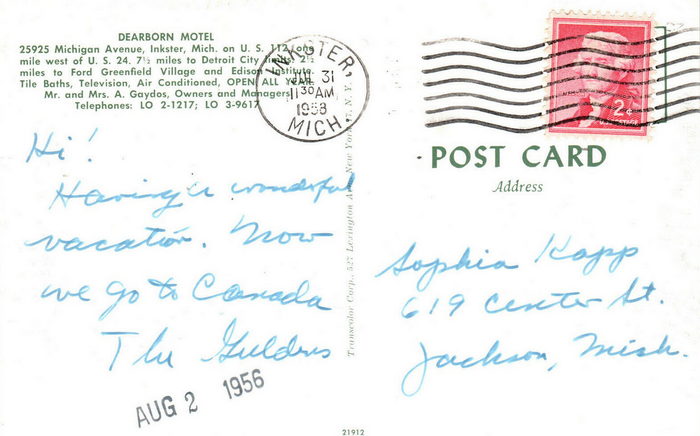 DEARBORN MOTEL
25925 Michigan Avenue, Inkster, Mich. on U. S. 112, one
mile west of U. S. 24. 7½ miles to Detroit City limits. 2½
miles to Ford Greenfield Village and Edison Institute.
Tile Baths, Television, Air Conditioned, OPEN ALL YEAR.
Mr. and Mrs. A. Gaydos, Owners and Managers
Telephones: LO 2-1217; LO 3-9617
INKSTER,
JUL 31
11 30 AM
1958
MICH.
2¢
POST CARD
Address
Hi!
Having a wonderful
vacation. Now
we go to Canada
The Gulders
AUG 2 1956
Transcolor Corp., 527 Lexington Ave., New York 17, N. Y.
Sophia Kapp
619 Center St.
Jackson, Mich.
21912